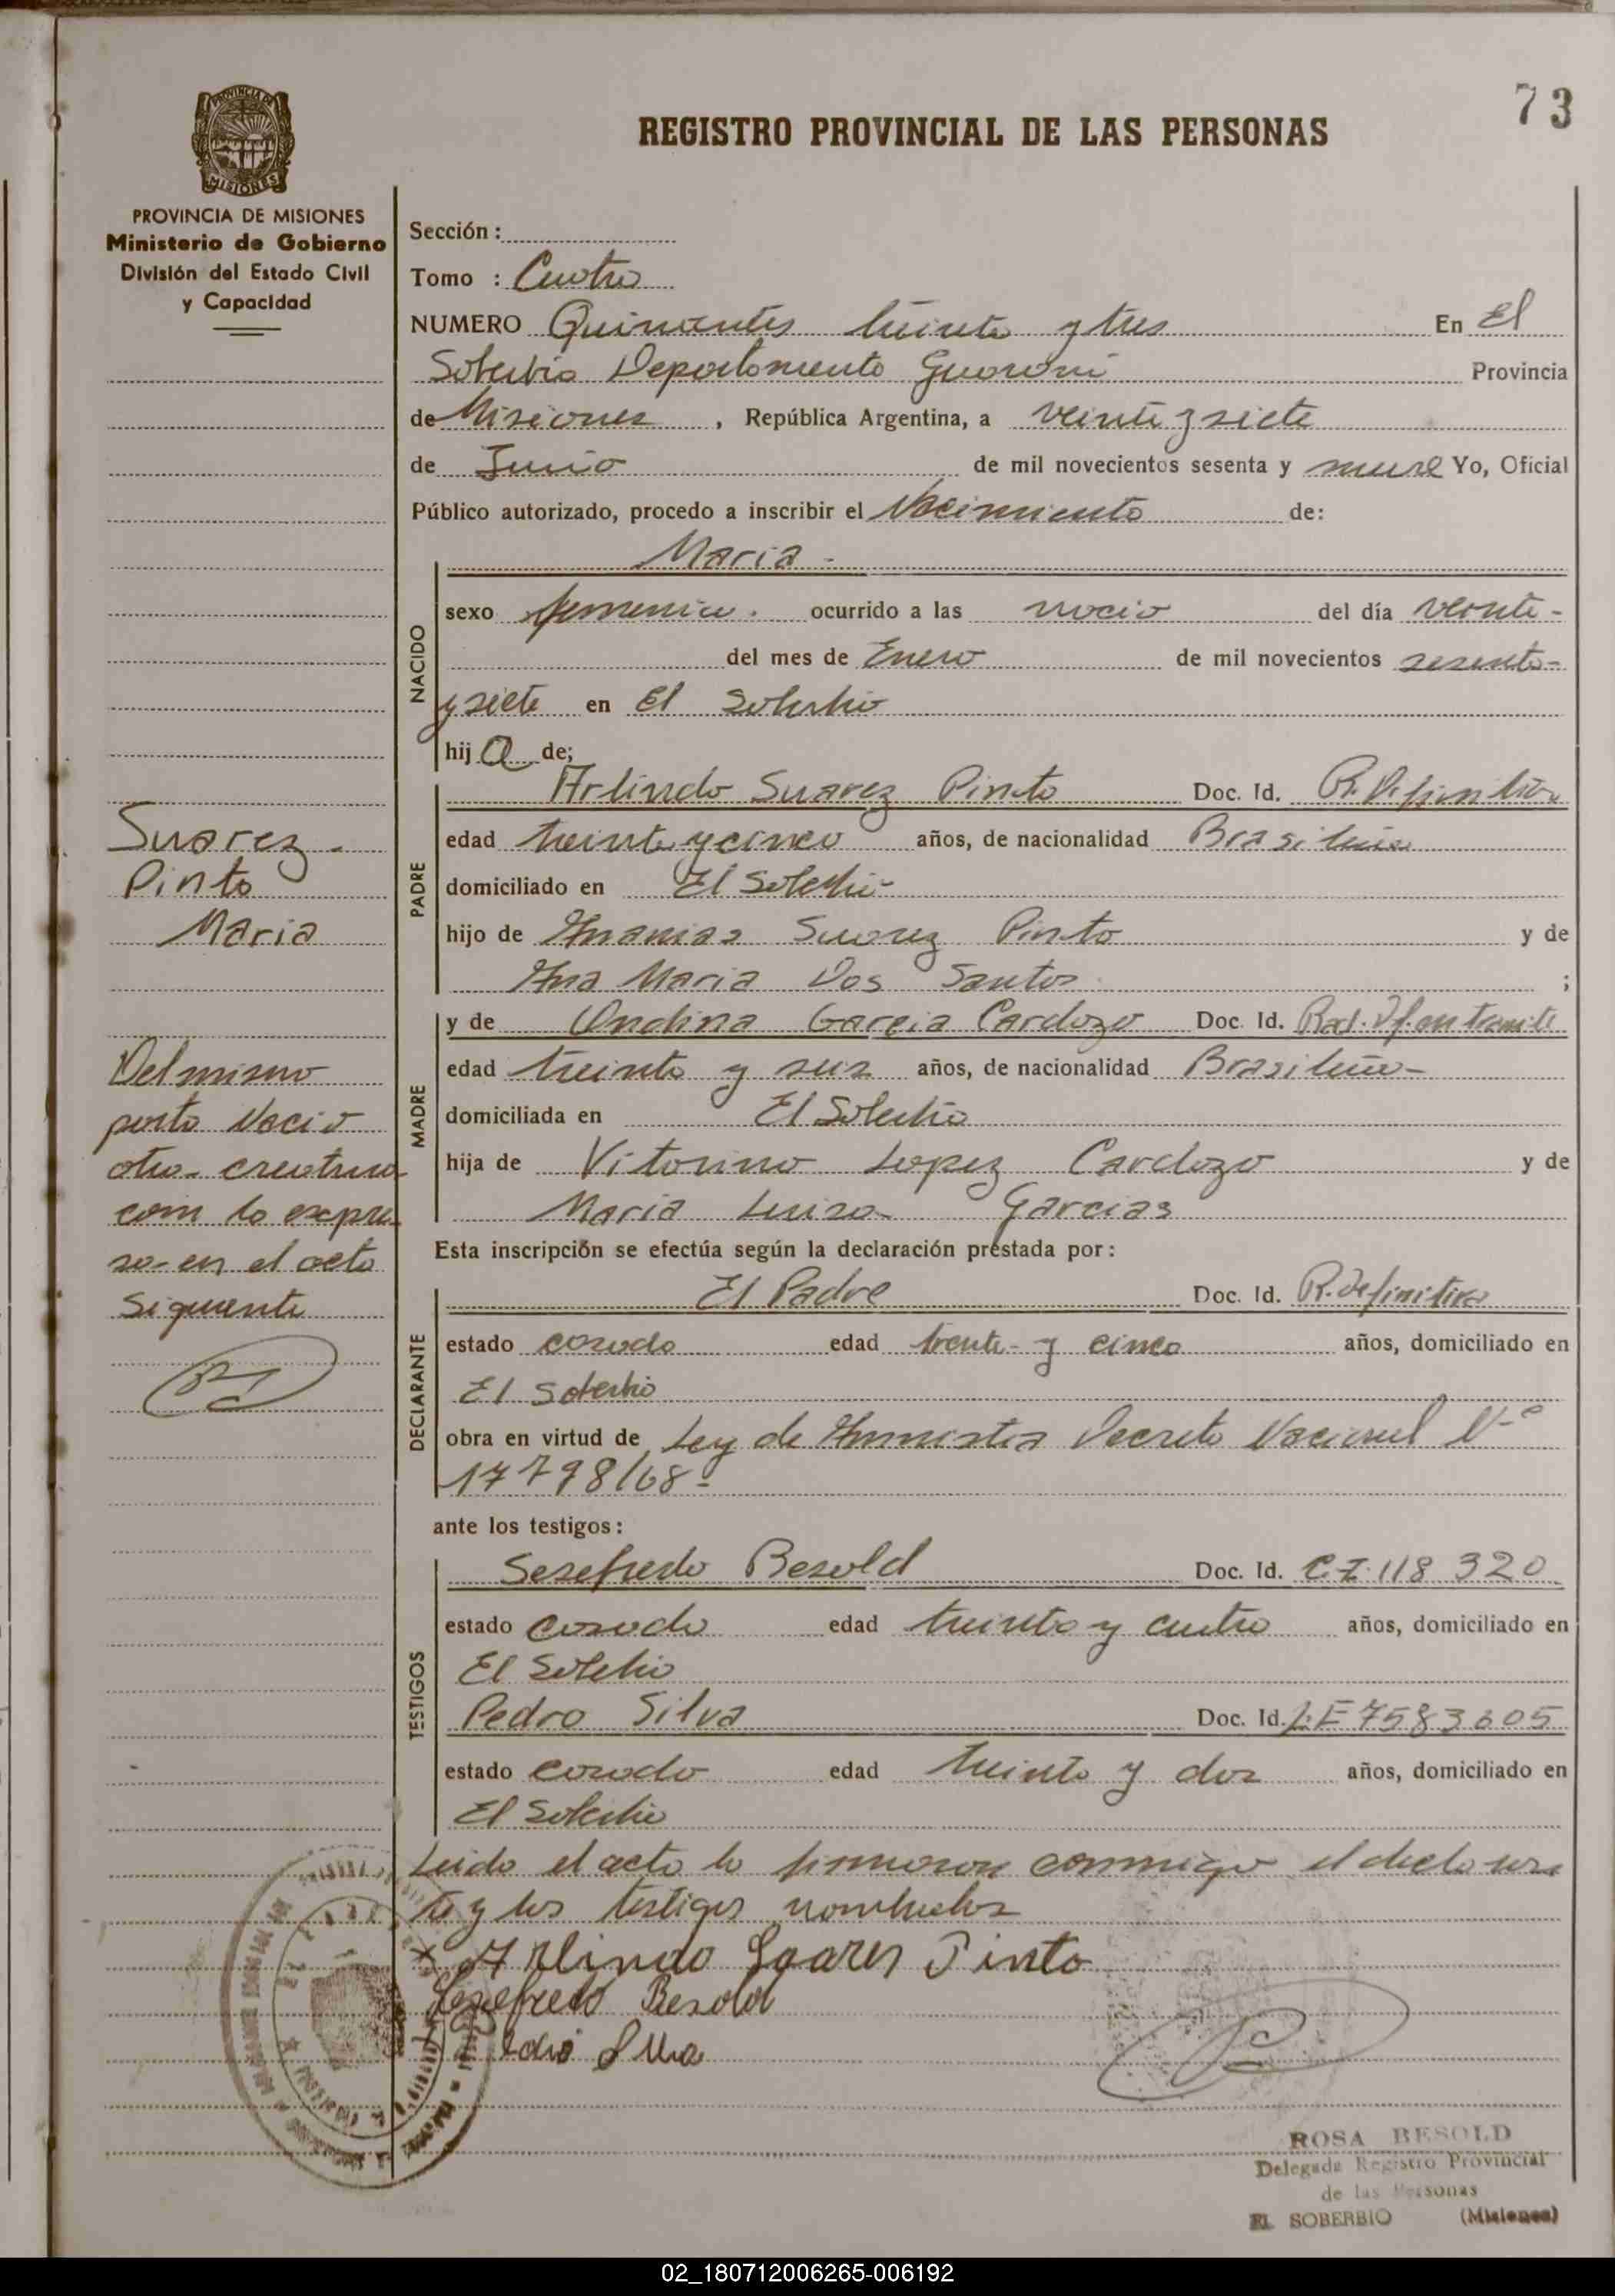 73
REGISTRO PROVINCIAL DE LAS PERSONAS
PROVINCIA DE MISIONES
MISIONES
PROVINCIA DE MISIONES
Ministerio de Gobierno
División del Estado Civil
y Capacidad
Sección :
Tomo : Cuatro
NUMERO Quinientos treinta y tres En El
Soberbio Departamento Guaraní Provincia
de Misiones , República Argentina, a veinte y siete
de Junio de mil novecientos sesenta y nueve Yo, Oficial
Público autorizado, procedo a inscribir el Nacimiento de:
NACIDO
Maria -
sexo femenino. ocurrido a las del día veinte -
del mes de Enero de mil novecientos sesenta -
y siete en El Soberbio
hij a de;
PADRE
Arlindo Suarez Pinto Doc. Id. R. Definitiva
edad treinta y cinco años, de nacionalidad Brasileña
domiciliado en El Soberbio
hijo de Ananias Suarez Pinto y de
Ana Maria Dos Santos ;
MADRE
y de Ondina Garcia Cardozo Doc. Id. Rad. Df. en tramite
edad treinta y seis años, de nacionalidad Brasileña -
domiciliada en El Soberbio
hija de Vitorino Lopez Cardozo y de
Maria Luiza Garcias
Suarez -
Pinto
Maria
Del mismo
parto Nacio
otra criatura
com lo expre
sa en el acta
Siguiente
Esta inscripción se efectúa según la declaración prestada por :
DECLARANTE
El Padre Doc. Id. R. definitiva
estado casado edad trente y cinco años, domiciliado en
El Soberbio
obra en virtud de Ley de Amnistia Decreto Nacional Nº
17798/68 -
ante los testigos :
TESTIGOS
Sesefredo Besold Doc. Id. C.I. 118 320
estado casado edad treinta y cuatro años, domiciliado en
El Soberbio
Pedro Silva Doc. Id. L.E 7583605
estado casado edad treinta y dos años, domiciliado en
El Soberbio
Leida el acta la firmaron conmigo el declaran
te y los testigos nombrados
x Arlindo Soares Pinto
Sesefredo Besold
Pedro Silva
ROSA BESOLD
Delegada Registro Provincial
de las Personas
EL SOBERBIO (Misiones)
02_180712006265-006192